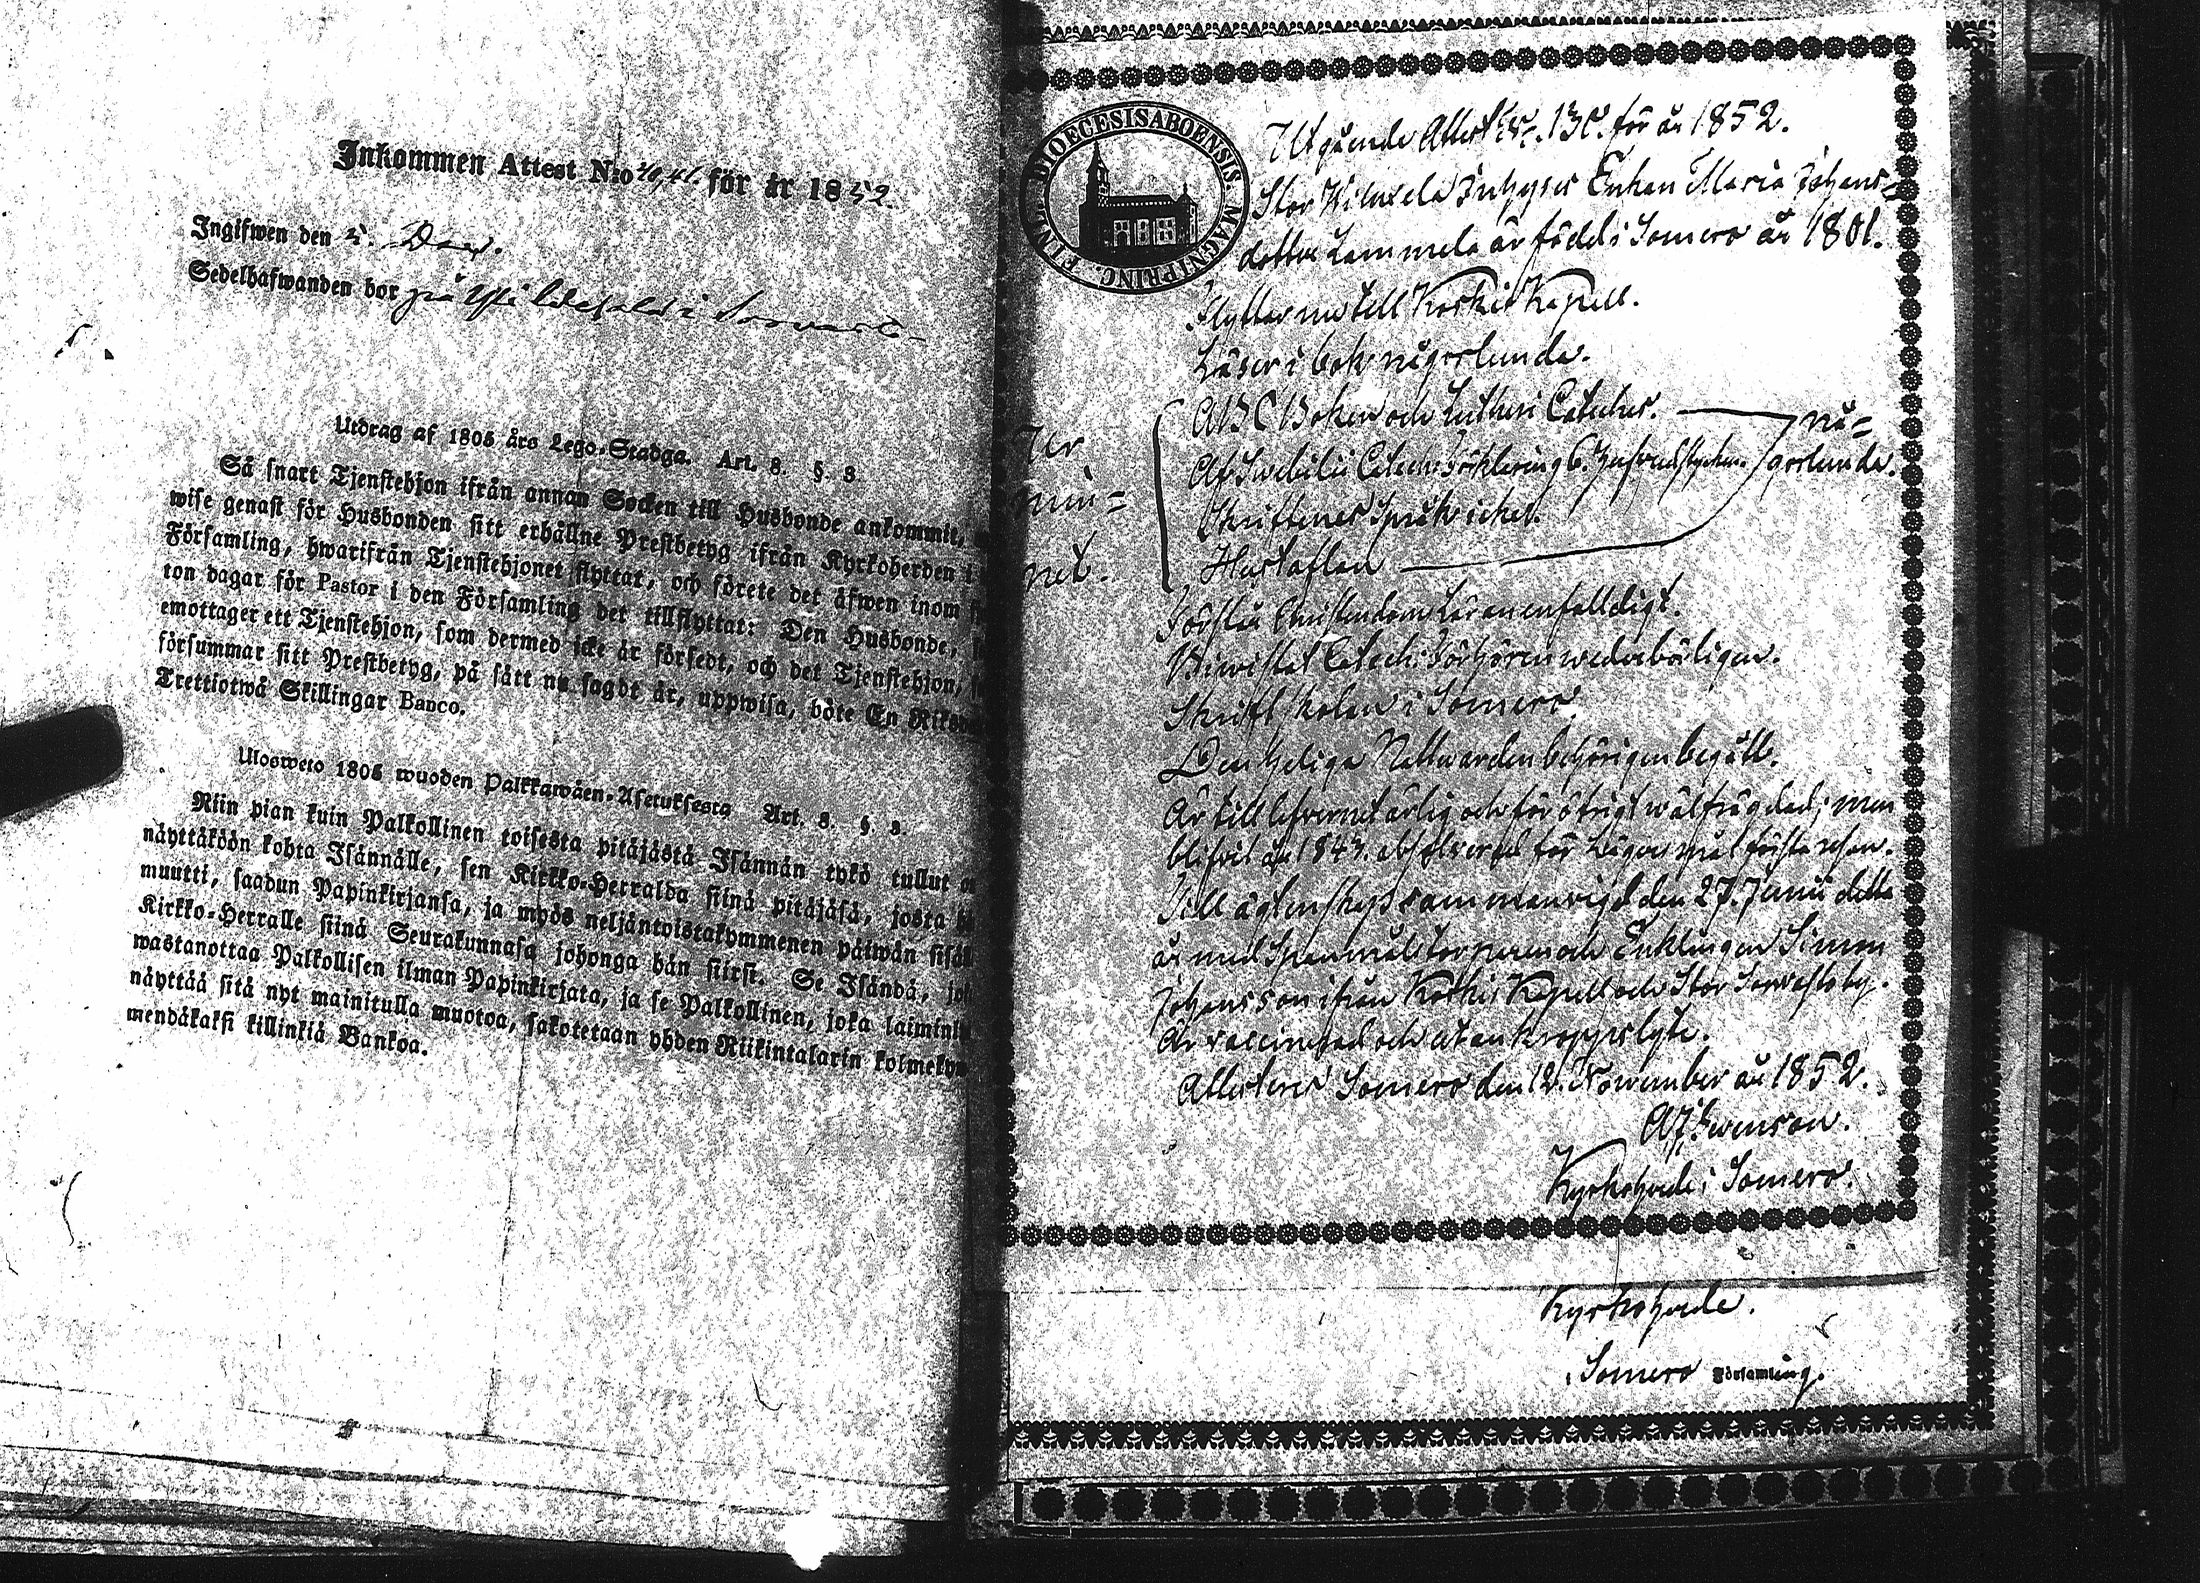 Inkommen Attest N:o 40,41. för år 1852.
Ingifwen den 5. Dec.
Sedelhafwanden bor på i
Utdrag af 1805 års Lego-Stadga. Art. 8. §. 3.
Så snart Tjenstehjon ifrån annan Socken till Husbonde ankommit,
wise genast för Husbonden sitt erhållne Prestbetyg ifrån Kyrkoherden i
Församling, hwarifrån Tjenstehjonet flyttat, och förete det äfwen inom
ton dagar för Pastor i den Församling det tillflyttat: Den Husbonde,
emottager ett Tjenstehjon, som dermed icke är försedt, och det Tjenstehjon,
försummar sitt Prestbetyg, på sätt nu sagdt är, uppwisa, böte En Riks
Trettiotwå Skillingar Banco.
Ulosweto 1805 wuoden Palkkawäen-Asetuksesta Art. 8. §. 3.
Niin pian kuin Palkollinen toisesta pitäjästä Isännän tykö tullut o
näyttäköön kohta Isännälle, sen Kirkko-Herralda siinä pitäjäsä, josta
muutti, saadun Papinkirjansa, ja myös neljäntoistakymmenen päiwän sisäl
Kirkko-Herralle siinä Seurakunnasa johonga hän siirst. Se Isändä, jo
wastanottaa Palkollisen ilman Papinkirjata, ja se Palkollinen, joka laimin
näyttää sitä nyt mainitulla muotoa, sakotetaan yhden Riikintalarin kolmeky
mendäkaksi killinkiä Bankoa.
DIOECESIS ABOENSIS. MAGNI PRINC. FINL.
Utgående Attest N:o 130. för år 1852.
Stor Enkan Maria Johans-
dotter Lammela är född i Somero år 1801.
Flyttar nu till Koskis Kapell.
Läser i bok någorlunda.
ABC Boken och Lutheri Cateches. nå-
Af Swebilii Catech: Förklaring 6. Hufvudstycken. gorlunda.
Skriftenes Språk icke.
Hustaflan
Förstår Christendoms Läran enfalldigt.
Biwistat Catech: Förhören wederbörligen.
Skriftskolan i Somero.
Den Heliga Nattwarden behörigen begått.
Är till lefvernet ärlig och för öfrigt wälfrägdad; men
blifvit år 1843. absolverad för Lägersmål första resan.
Till ägtenskap sammanvigd den 27. Junii detta
år med Spanmåls torparen och Enklingen Simon
Johansson ifrån Koskis Kapell och Stor Sorvasto by.
Är vaccinerad och utan kroppslyte.
Attesteras Somero den 12. November år 1852.
A J Swenson.
Kyrkoherde i Somero.
ner
mi=
net.
Kyrkoherde.
i Somero Församling.